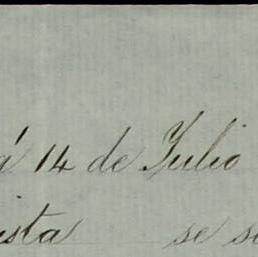 á 14 de Julio
ista se s